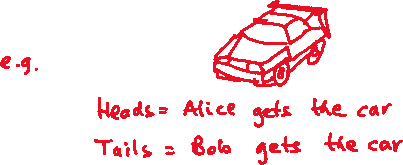 e.g.
Heads = Alice gets the car
Tails = Bob gets the car